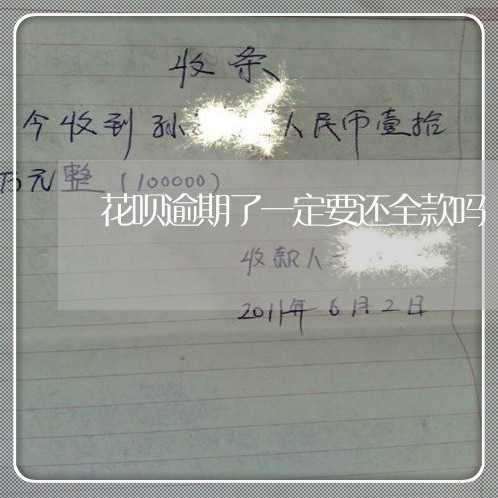 收条
今收到孙 人民币壹拾
万元整(100000)
花呗逾期了一定要还全款吗
收款人
2011年6月2日